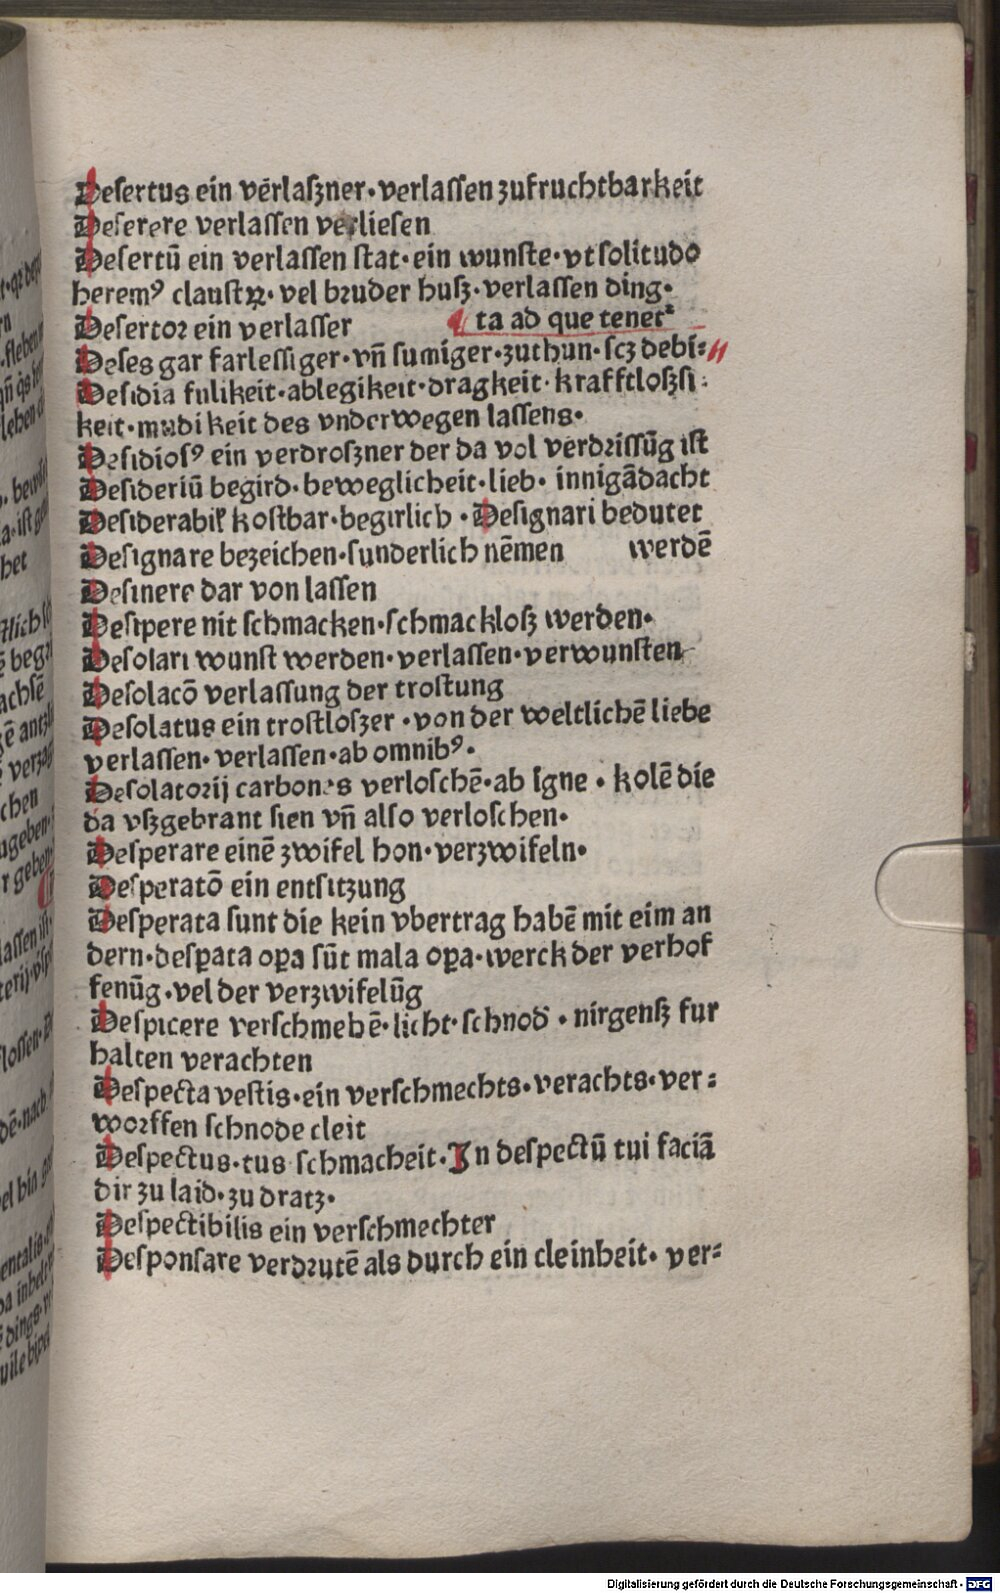 Desertus ein vērlaſzner·verlaſſen zufruchtbarkeit
Deſerere verlaſſen verlieſen
Deſertū ein verlaſſen ſtat·ein wunſte·vt ſolitudo
heremꝰ clauſtꝝ·vel bruder huſz·verlaſſen ding·
Deſertor ein verlaſſer
ta ad que tenet᷑
Deſes gar farleſſiger·vn̄ ſumiger·zuthun·ſcz debi⸗
Deſidia fulikeit·ablegikeit·dragkeit·krafftloſzſi⸗
keit·mudikeit des vnderwegen laſſens·
Deſidioſꝰ ein verdroſzner der da vol verdriſſūg iſt
Deſideriū begird·beweglicheit·lieb· innigādacht
Deſiderabiľ koſtbar·begirlich·Deſignari bedutet
Deſignare bezeichen·ſunderlich nēmen werdē
Deſinere dar von laſſen
Deſipere nit ſchmacken·ſchmackloſz werden·
Deſolari wunſt werden·verlaſſen·verwunſten
Deſolacō verlaſſung der troſtung
Deſolatus ein troſtloſzer·von der weltlichē liebe
verlaſſen·verlaſſen·ab omnibꝰ·
Deſolatorij carbones verloſchē·ab igne·kolē die
da vſzgebrant ſien vn̄ alſo verloſchen·
Deſperare einē zwifel hon·verzwifeln·
Deſperatō ein entſitzung
Deſperata ſunt die kein vbertrag habē mit eim an
dern·deſꝑata oꝑa ſūt mala oꝑa·werck der verhof
fenūg·vel der verzwifelūg
Deſpicere verſchmehē·licht·ſchnod·nirgenſz fur
halten verachten
Deſpecta veſtis·ein verſchmechts·verachts·ver⸗
worffen ſchnode cleit
Deſpectus·tus ſchmacheit·In deſpectū tui faciā
dir zu laid·zu dratz·
Deſpectibilis ein verſchmechter
Deſponſare verdrutē als durch ein cleinheit·ver⸗
Digitalisierung gefördert durch die Deutsche Forschungsgemeinschaft - DFG